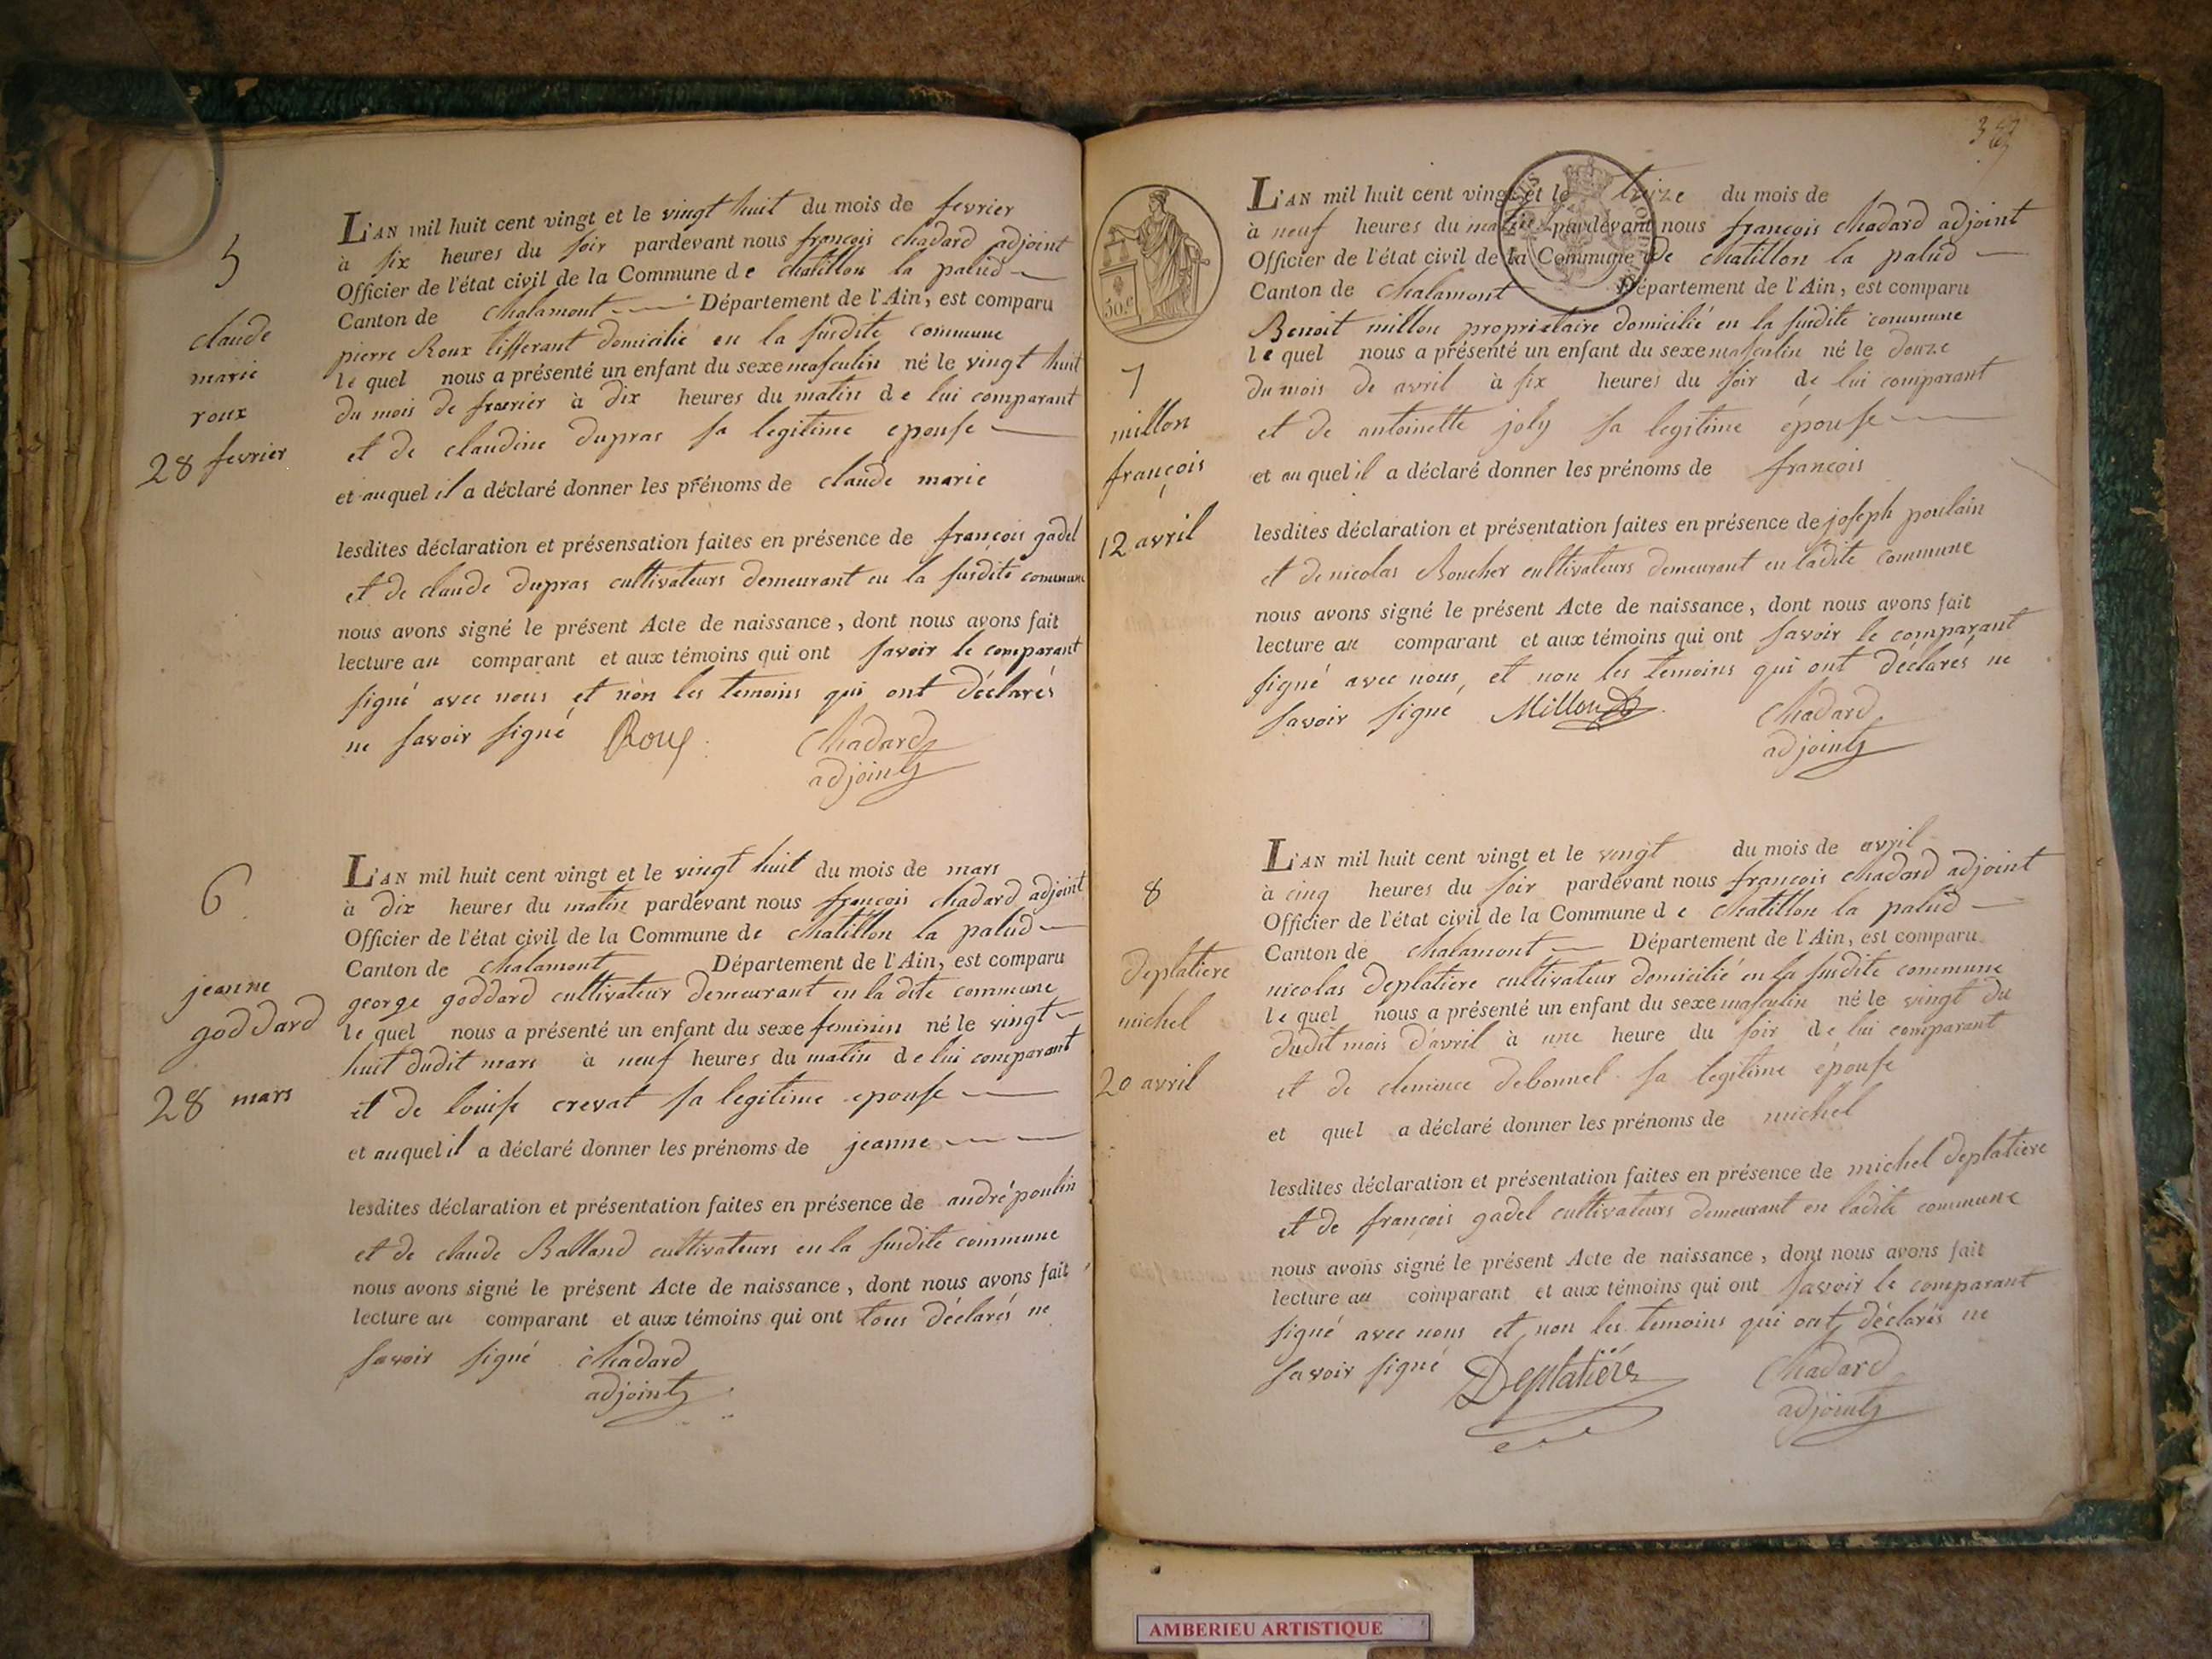 5
claude
marie
roux
28 fevrier
L'AN mil huit cent vingt et le vingt huit du mois de fevrier
à six heures du soir pardevant nous françois chadard adjoint
Officier de l'état civil de la Commune de chatillon la palud
Canton de chalamont Département de l'Ain, est comparu
pierre Roux tisserant domicilié en la susdite commune
lequel nous a présenté un enfant du sexe masculin né le vingt huit
du mois de fevrier à dix heures du matin de lui comparant
et de claudine dupras sa legitime epouse
et auquel il a déclaré donner les prénoms de claude marie
lesdites déclaration et présensation faites en présence de françois gadel
et de claude dupras cultivateurs demeurant en la susdite commune
nous avons signé le présent Acte de naissance, dont nous avons fait
lecture au comparant et aux témoins qui ont savoir le comparant
signé avec nous et non les temoins qui ont déclarés
ne savoir signé Roux chadard
adjoint
6
jeanne
goddard
28 mars
L'AN mil huit cent vingt et le vingt huit du mois de mars
à dix heures du matin pardevant nous françois chadard adjoint
Officier de l'état civil de la Commune de chatillon la palud
Canton de chalamont Département de l'Ain, est comparu
george goddard cultivateur demeurant en la dite commune
lequel nous a présenté un enfant du sexe feminin né le vingt
huit dudit mars à neuf heures du matin de lui comparant
et de louise crevat sa legitime epouse
et auquel il a déclaré donner les prénoms de jeanne
lesdites déclaration et présentation faites en présence de andré poulin
et de claude Balland cultivateurs en la susdite commune
nous avons signé le présent Acte de naissance, dont nous avons fait
lecture au comparant et aux témoins qui ont tous déclarés ne
savoir signé chadard
adjoint
50 c
7
millon
françois
12 avril
L'AN mil huit cent vingt et le treize du mois de
à neuf heures du matin pardevant nous françois chadard adjoint
Officier de l'état civil de la Commune de chatillon la palud
Canton de chalamont Département de l'Ain, est comparu
Benoit millon proprietaire domicilié en la susdite commune
lequel nous a présenté un enfant du sexe masculin né le douze
du mois de avril à six heures du soir de lui comparant
et de antoinette joly sa legitime épouse
et au quel il a déclaré donner les prénoms de françois
lesdites déclaration et présentation faites en présence de joseph poulain
et de nicolas Boucher cultivateurs demeurant en ladite commune
nous avons signé le présent Acte de naissance, dont nous avons fait
lecture au comparant et aux témoins qui ont savoir le comparant
signé avec nous, et non les temoins qui ont déclarés ne
savoir signé Millon chadard
adjoint
8
deplatiere
michel
20 avril
L'AN mil huit cent vingt et le vingt du mois de avril
à cinq heures du soir pardevant nous françois chadard adjoint
Officier de l'état civil de la Commune de chatillon la palud
Canton de chalamont Département de l'Ain, est comparu
nicolas deplatiere cultivateur domicilié en la susdite commune
lequel nous a présenté un enfant du sexe masculin né le vingt du
dudit mois d'avril à une heure du soir de lui comparant
et de clemence debonnel sa legitime épouse
et quel a déclaré donner les prénoms de michel
lesdites déclaration et présentation faites en présence de michel deplatiere
et de françois gadel cultivateurs demeurant en ladite commune
nous avons signé le présent Acte de naissance, dont nous avons fait
lecture au comparant et aux témoins qui ont savoir le comparant
signé avec nous et non les temoins qui ont déclarés ne
savoir signé Deplatiére chadard
adjoint
AMBERIEU ARTISTIQUE